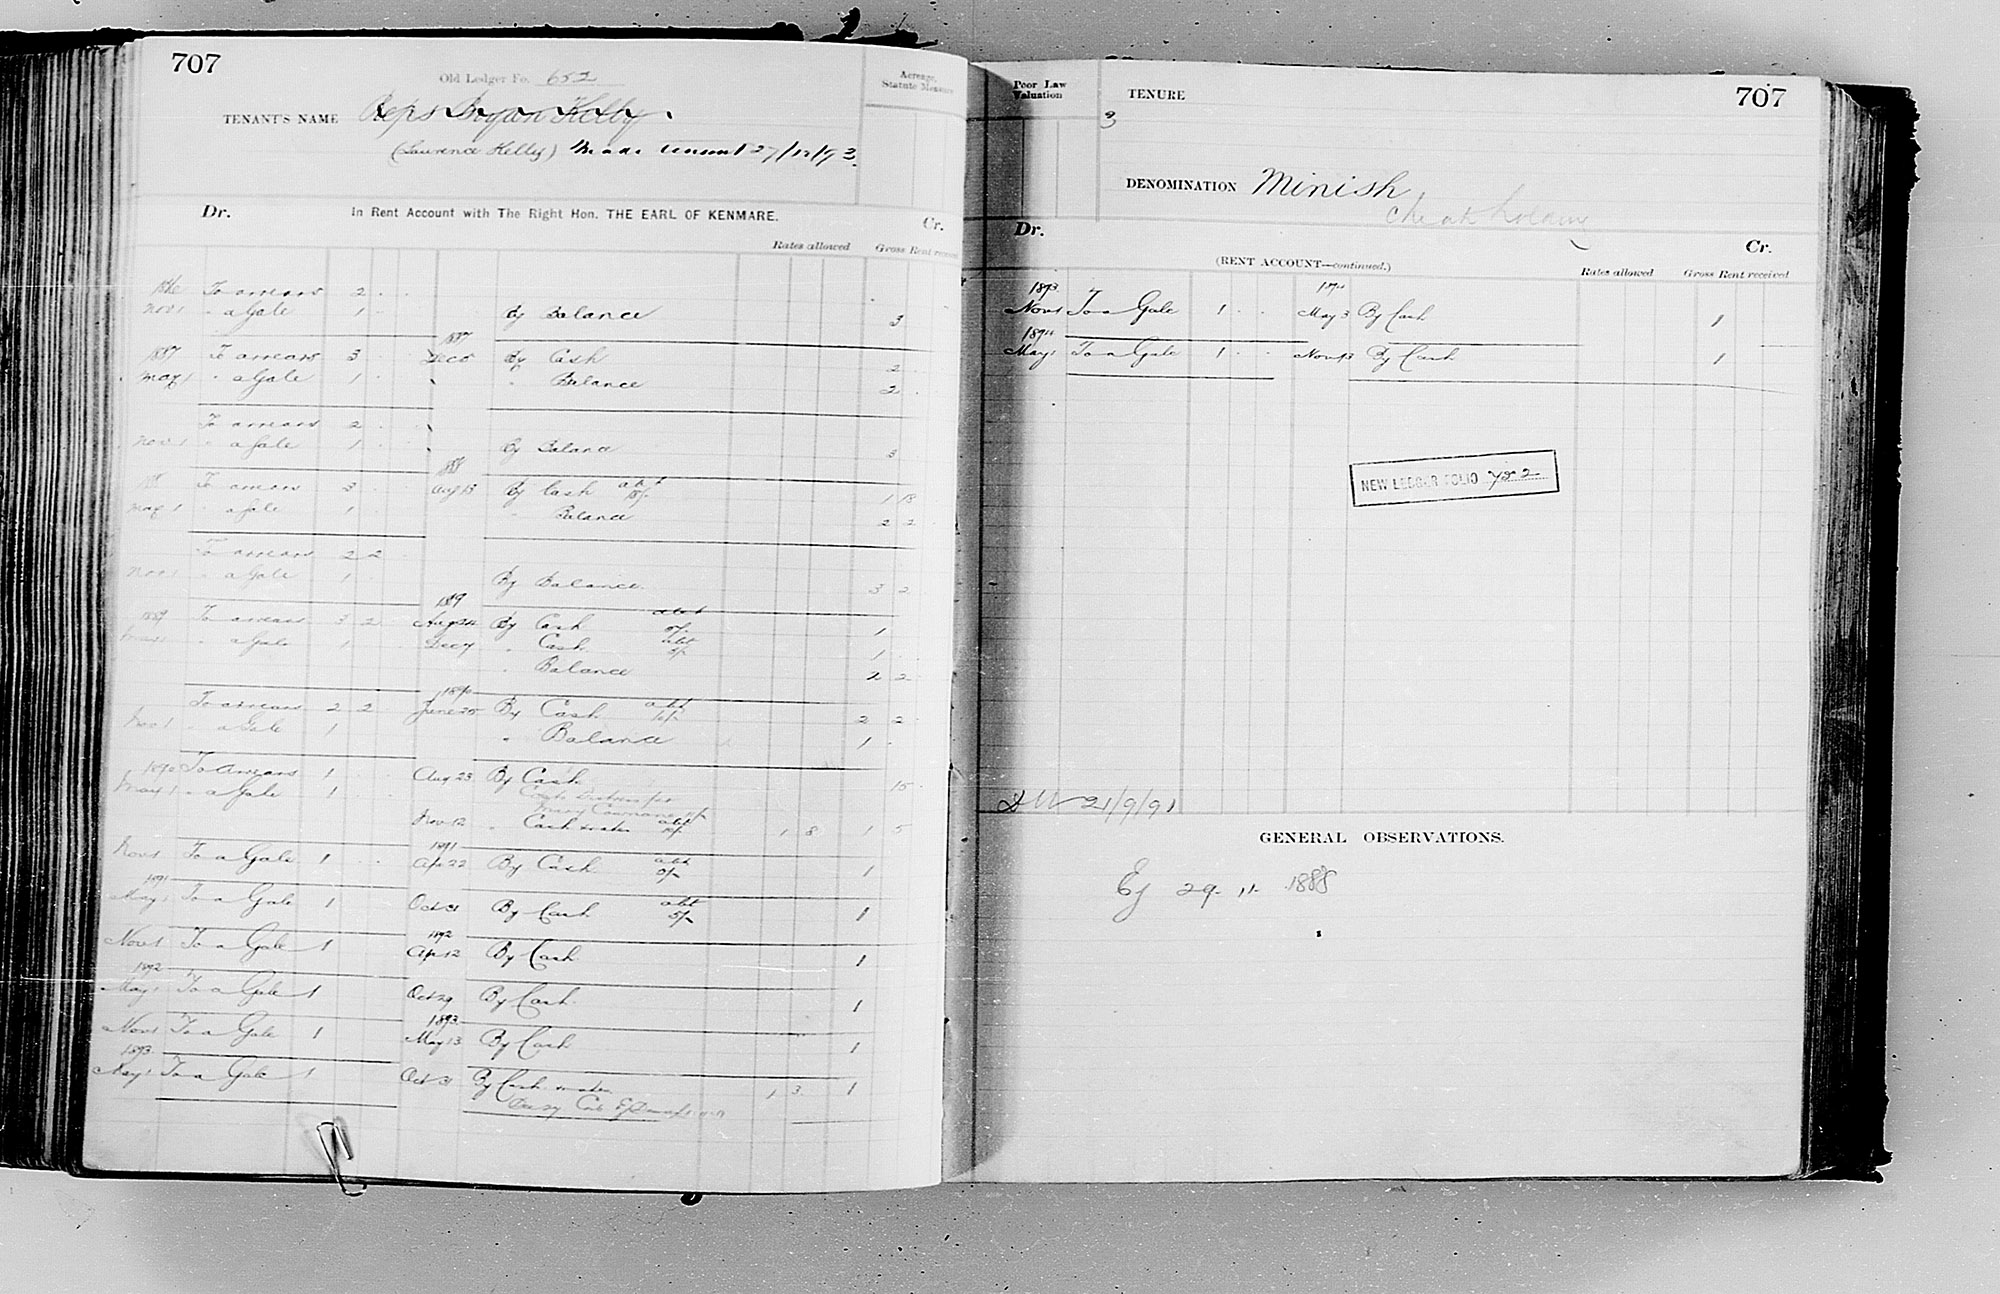 707
Old Ledger Fo. 652
Acreage, Statute Measure
TENANT'S NAME Reps Bryan Kelly
(Laurence Kelly) Made tenant 27/12/93
Dr. In Rent Account with The Right Hon. THE EARL OF KENMARE. Cr.
Rates allowed Gross Rent received
1886 To arrears 2
Nov 1 " a Gale 1 By Balance 3
1887
1887 To arrears 3 Dec 5 By Cash 2
May 1 " a Gale 1 " Balance 2
To arrears 2
Nov 1 " a Gale 1 By Balance 3
1888
188 To arrears 3 Aug 13 By Cash abt 1 18
May 1 " a Gale 1 Balance 2 2
To arrears 2 2
Nov 1 " a Gale 1 By Balance 3 2
1889
1889 To arrears 3 2 Aug 24 By Cash abt 1
May 1 " a Gale 1 Dec 7 " Cash abt 5/- 1
" Balance 2 2
1890
To arrears 2 2 June 25 By Cash abt 2 2
Nov 1 " a Gale 1 " Balance 1
1890 To Arrears 1 Aug 23 By Cash 15
May 1 " a Gale 1
Nov 12 " Cash & rates abt 1 8 1 5
1891
Nov 1 To a Gale 1 Ap 22 By Cash abt 1
1891
May 1 To a Gale 1 Oct 31 By Cash abt 5/- 1
1892
Nov 1 To a Gale 1 Ap 12 By Cash 1
1892
May 1 To a Gale 1 Oct 29 By Cash 1
1893
Nov 1 To a Gale 1 May 13 By Cash 1
1893
May 1 To a Gale 1 Oct 31 By Cash & rates 1 3 1
Poor Law Valuation
TENURE
707
3
DENOMINATION Minish
Cheak holding
Dr. Cr.
(RENT ACCOUNT—continued.)
Rates allowed Gross Rent received
1893
Nov 1 To a Gale 1 May 3 By Cash 1
1894
May 1 To a Gale 1 Nov 13 By Cash 1
NEW LEDGER FOLIO 752
21/9/91
GENERAL OBSERVATIONS.
Ej 29. 11. 1888